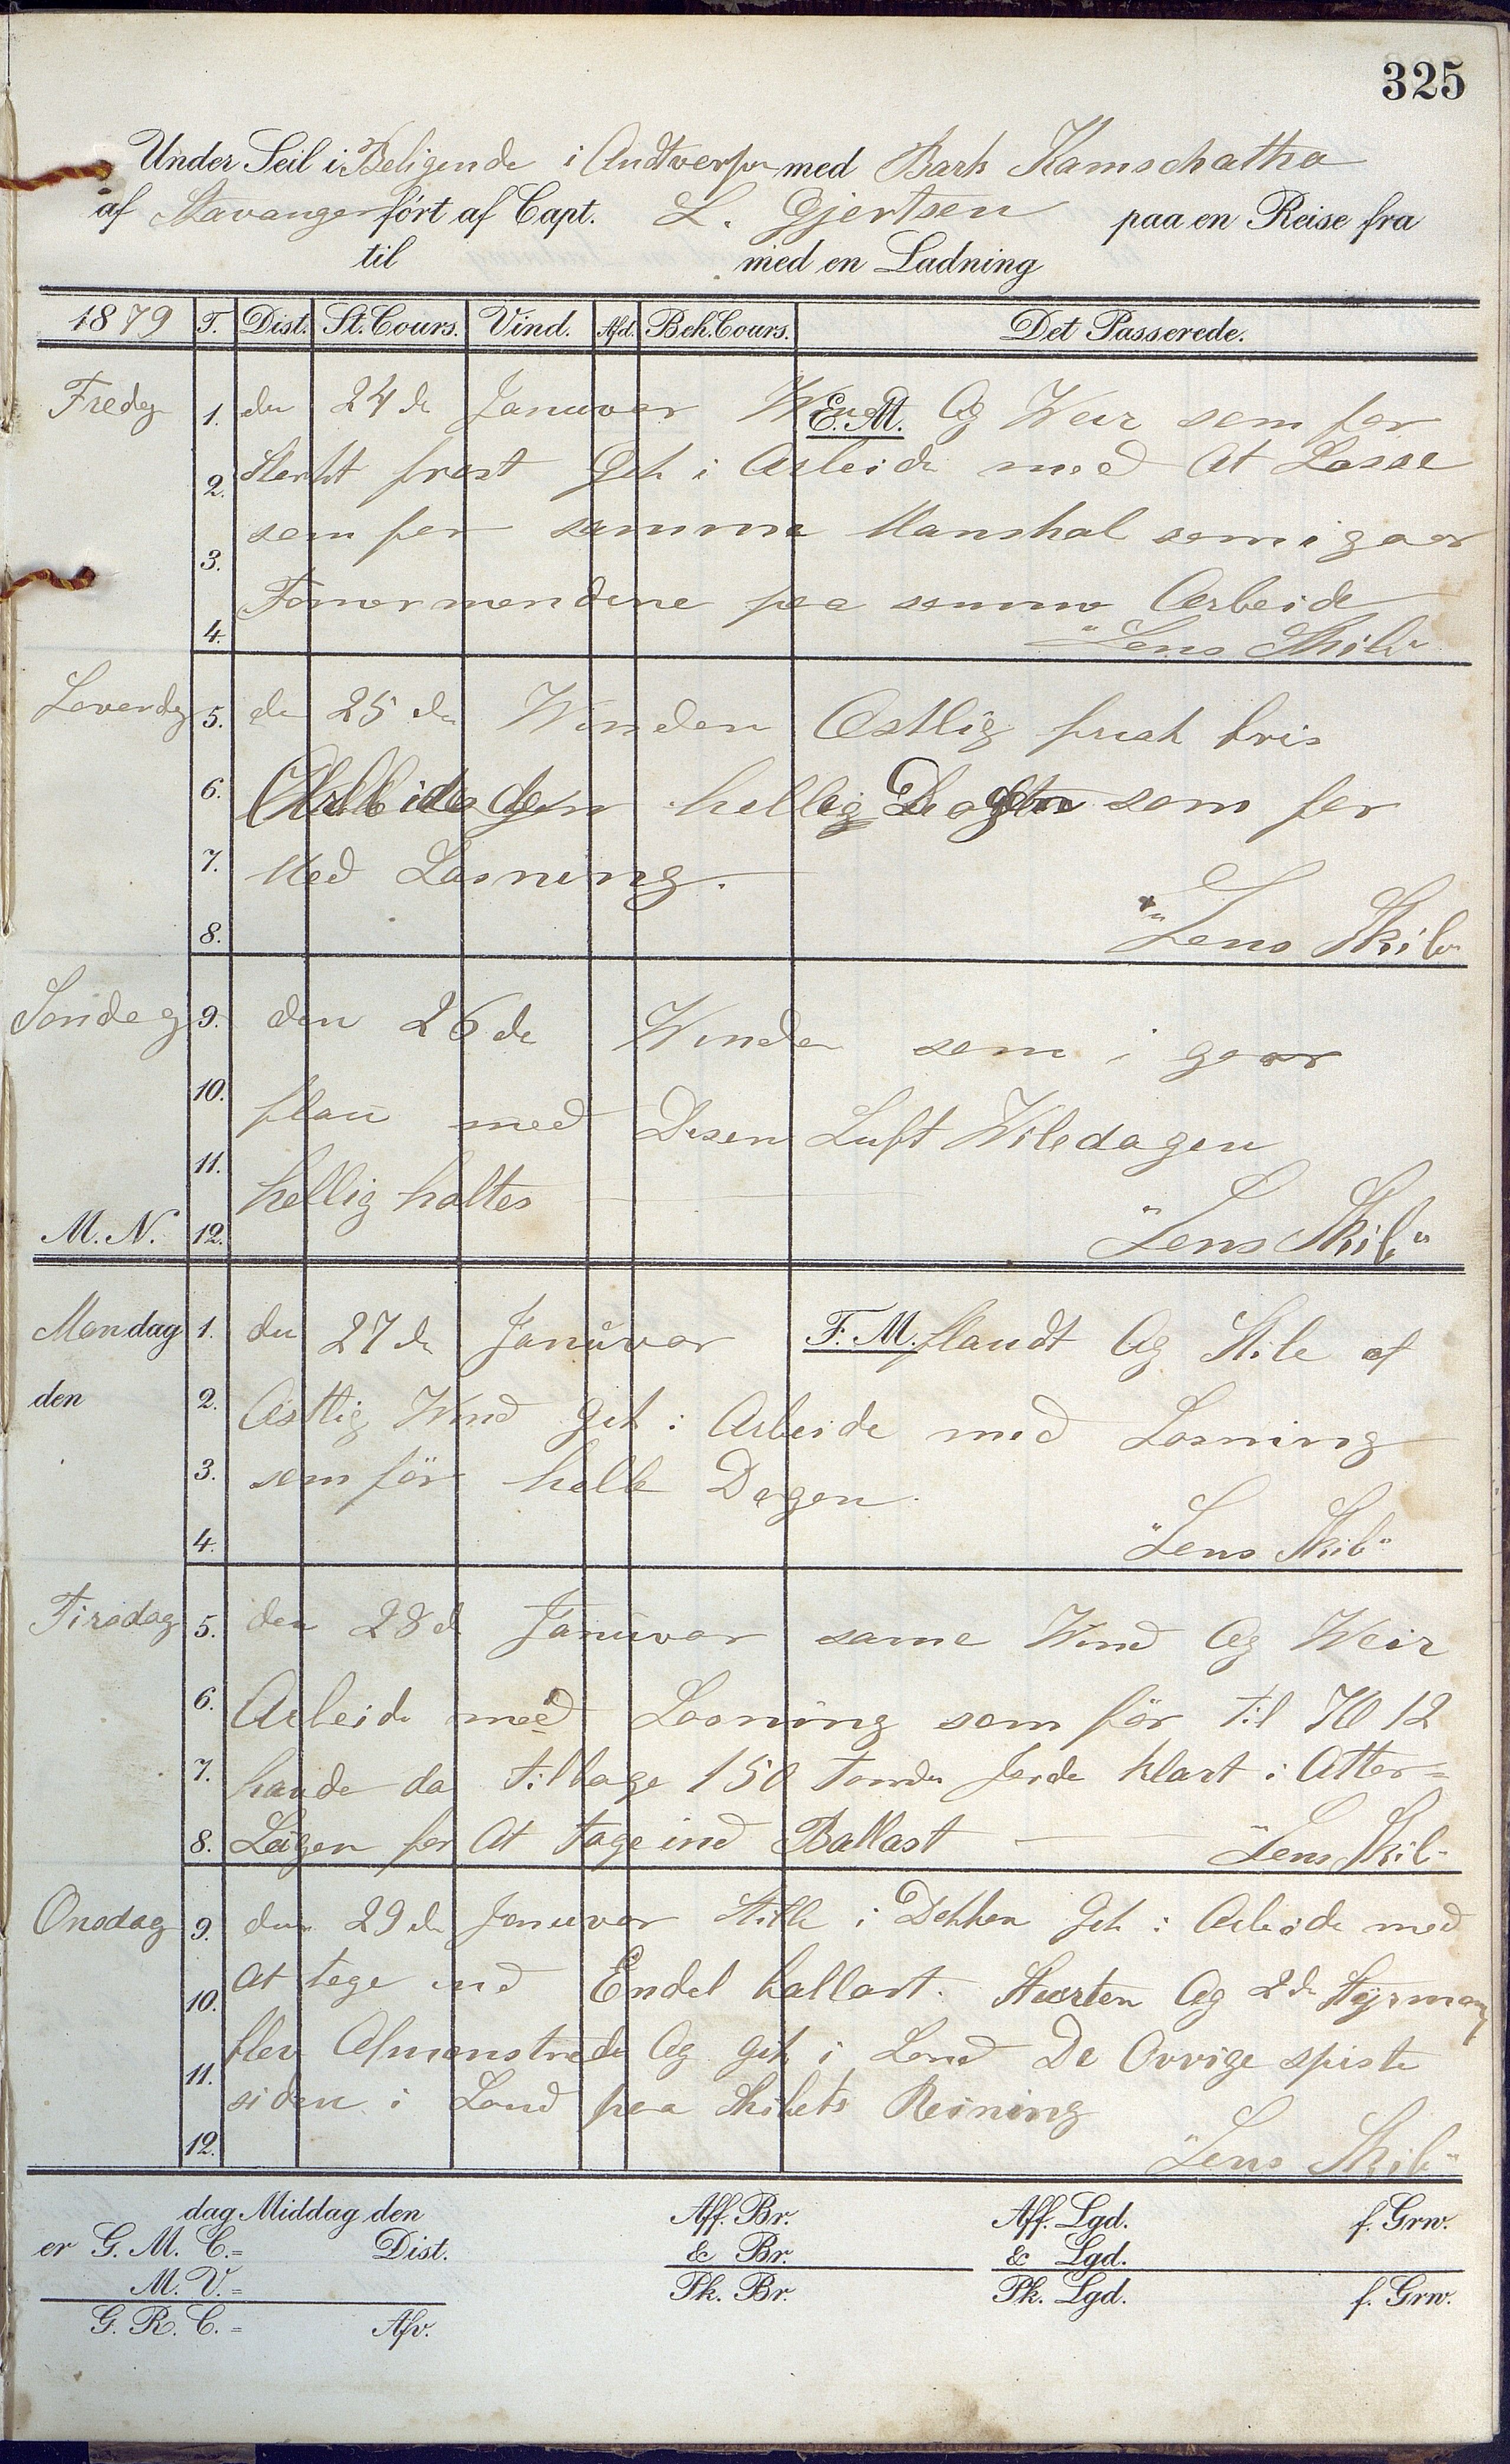 325
Under Seil i Beligende i Andtverpn med Bark Kamschatka
af Stavanger ført af Capt. L. Gjertsen paa en Reise fra
til med en Ladning
1879 T. Dist. St. Cours. Vind. Afd. Beh. Cours. Det Passerede.
Fredg 1. den 24 de Januvar E. M. Og Weir som for
2. Sterkt frost Gik i Arbeide med At Losse
3. som for samme Manskal som i gaar
4. Tømermendene paa samme Arbeide
"Lens Skib"
Loverdg 5. de 25 de Winden Ostlig frisk bris
6. hellig Dagen som for
7. Med Losning.
8. "Lens Skib"
Sondag 9. den 26 de Winden som i gaar
10. flau med Disen Luft Viledagen
11. hellig holtes
M. N. 12. "Lens Skib"
Mandag 1. den 27 de Januvar F. M. flaudt Og Stile af
den 2. Ostlig Wind Gik i Arbeide med Losning
3. som för helle Dagen.
4. "Lens Skib"
Tirsdag 5. den 28 d Januvar same Wind Og Weir
6. Arbeide med Losning som för til Kl 12
7. havde da tilbage 150 Tonder Jerde klart i Atter=
8. Laigen for At tage ind Ballast "Lens Skib"
Onsdag 9. den 29 de Januvar Stille i Dokken Gik i Arbeide med
10. At tage ind Endel ballast. Stuerten Og 2de Styrman
11. blev Afmonstrede Og gik i Land De Ovrige spiste
siden i Land paa Skibets Reining
12. "Lens Skib"
dag Middag den Aff. Br. Aff. Lgd. f. Grw.
er G. M. C.= Dist. & Br. & Lgd.
M. V.= Pk. Br. Pk. Lgd. f. Grw.
G. R. C.= Afv.